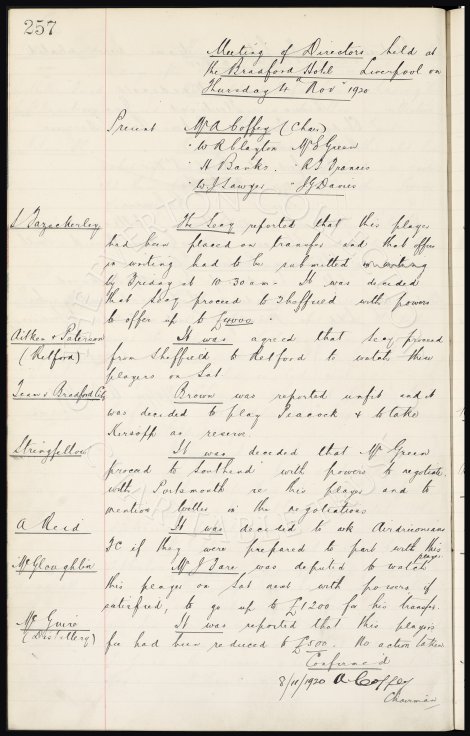 257
Meeting of Directors held at
the Bradford Hotel Liverpool on
Thursday 4th Nov 1920
Present Mr A Coffey (Chair)
" W R Clayton Mr E Green
" H Banks. " R T Francis
" W J Sawyer " J G Davies
S Fazackerley
The Secy reported that this player
had been placed on transfer and that offers
in writing had to be submitted
by Friday at 10.30 am. It was decided
that Secy proceed to Sheffield with powers
to offer up to £4000.
Aitken & Paterson
(Retford)
It was agreed that Secy proceed
from Sheffield to Retford to watch these
players on Sat
Team v Bradford City
Brown was reported unfit and it
was decided to play Peacock & to take
Kirsopp as reserve.
Stringfellow
It was decided that Mr Green
proceed to Southend with powers to negotiate
with Portsmouth re this player and to
mention in the negotiations
A Reid
It was decided to ask Airdrieonians
FC if they were prepared to part with this
player
McGloughlin
Mr J was deputed to watch
this player on Sat next with powers, if
satisfied, to go up to £1200 for his transfer.
(Distillery)
It was reported that this players
fee had been reduced to £500. No action taken
Confirmed
8/11/1920 A Coffey
Chairman